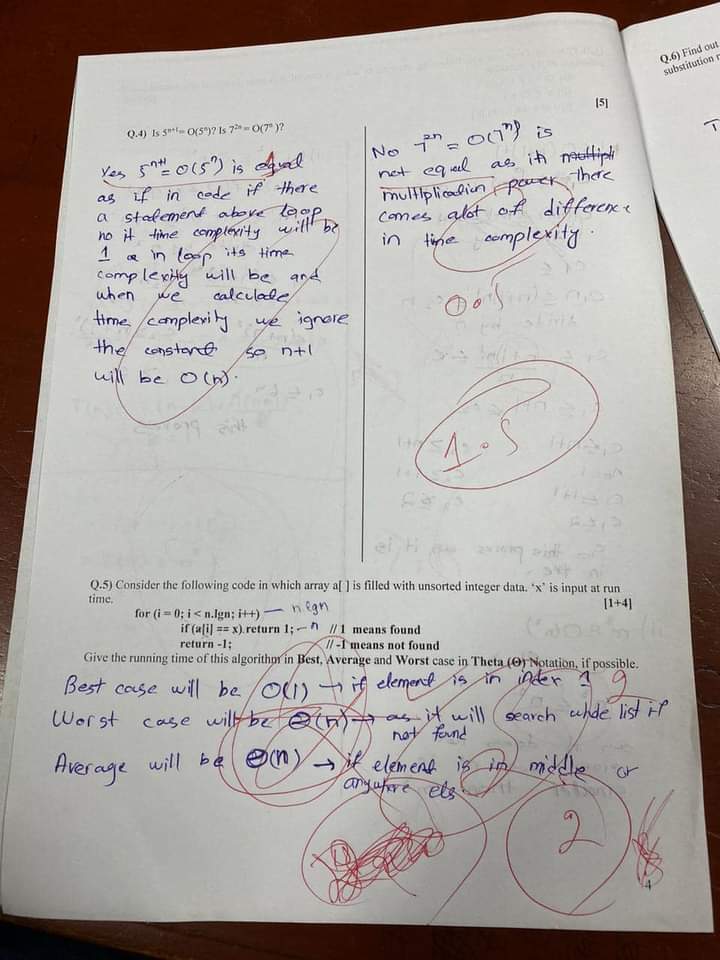 Q.6) Find out
substitution
[5]
Q.4) Is 5ⁿ⁺¹= O(5ⁿ)? Is 7²ⁿ = O(7ⁿ )?
Yes 5ⁿ⁺¹= O(5ⁿ) is equal
as if in code if there
a statement above loop
no it time complexity will be
1 in loop its time
complexity will be and
when we calculate
time complexity we ignore
the constant so n+1
will be O(n).
No 7²ⁿ = O(7ⁿ) is
not equal as in multipli
multiplication power there
comes alot of difference
in time complexity.
0.5
1.5
Q.5) Consider the following code in which array a[ ] is filled with unsorted integer data. 'x' is input at run
time.
[1+4]
for (i = 0; i < n.lgn; i++) — n.lgn
if (a[i] == x) return 1; — n // 1 means found
return -1; // -1 means not found
Give the running time of this algorithm in Best, Average and Worst case in Theta (Θ) Notation, if possible.
Best case will be O(1) → if element is in index 1
Worst case will be Θ(n) → as it will search whole list if
not found
Average will be Θ(n) → if element is in middle or
anywhere els.
2
4